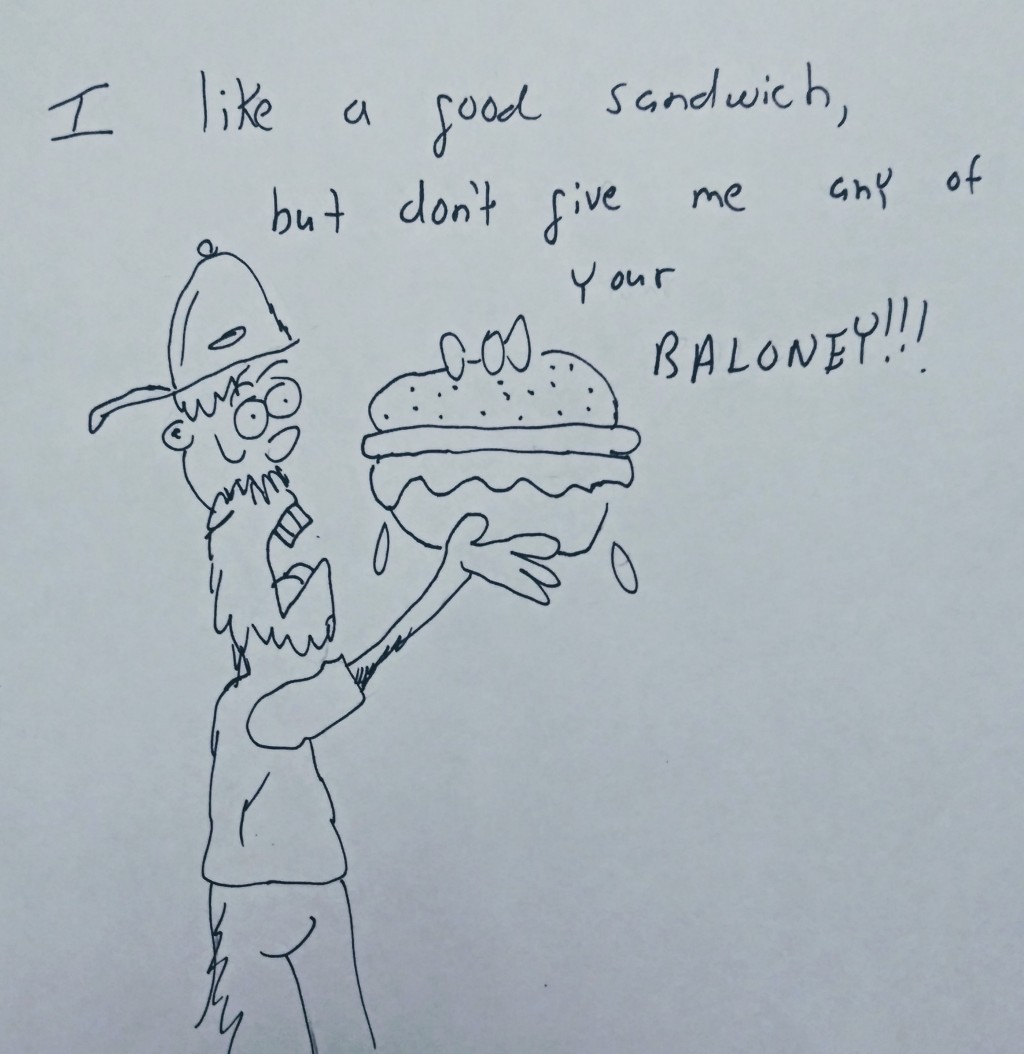 I like a good sandwich,
but don't give me any of
your
BALONEY!!!